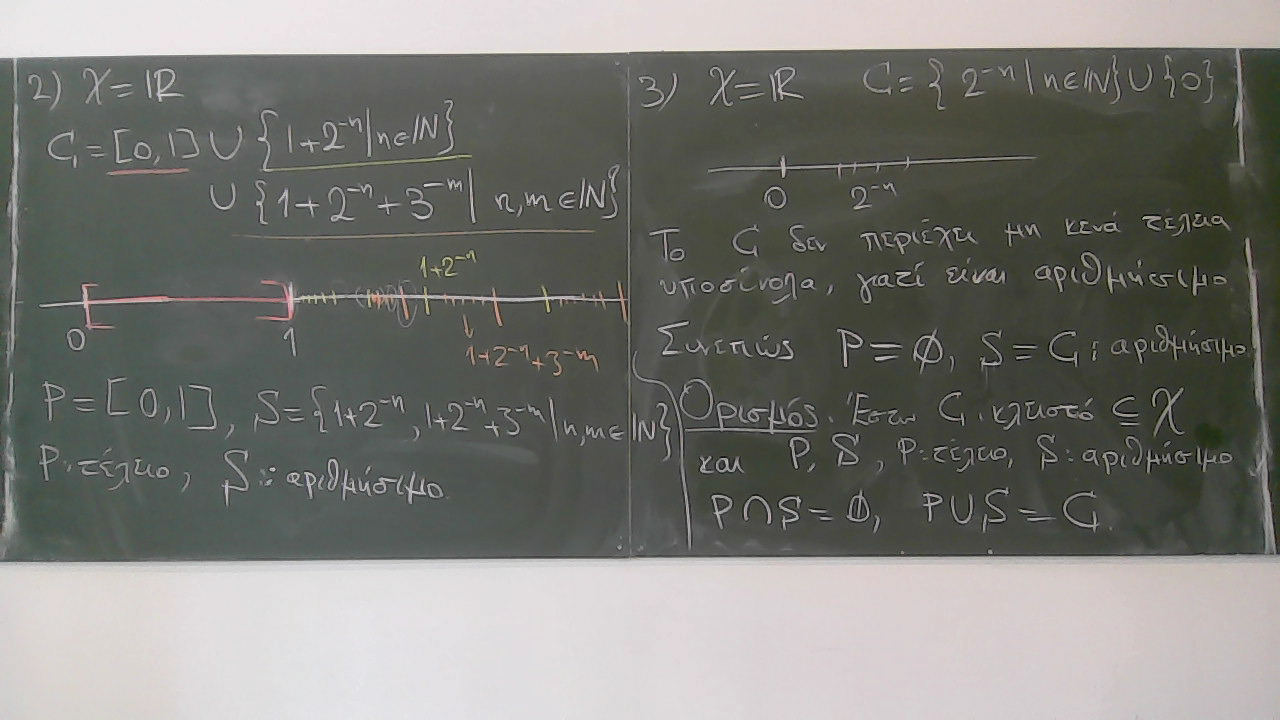 2) X = ℝ
C = [0,1] ∪ {1+2⁻ⁿ | n∈ℕ}
∪ {1+2⁻ⁿ+3⁻ᵐ | n,m∈ℕ}
1+2⁻ⁿ
0 1
1+2⁻ⁿ+3⁻ᵐ
P = [0,1], S = {1+2⁻ⁿ, 1+2⁻ⁿ+3⁻ᵐ | n,m∈ℕ}
P: τέλειο, S: αριθμήσιμο.
3) X = ℝ C = {2⁻ⁿ | n∈ℕ} ∪ {0}
0 2⁻ⁿ
Το C δεν περιέχει μη κενά τέλεια
υποσύνολα, γιατί είναι αριθμήσιμο.
Συνεπώς P = ∅, S = C: αριθμήσιμο.
Ορισμός. Έστω C κλειστό ⊆ X
και P, S, P: τέλειο, S: αριθμήσιμο
P∩S = ∅, P∪S = C.